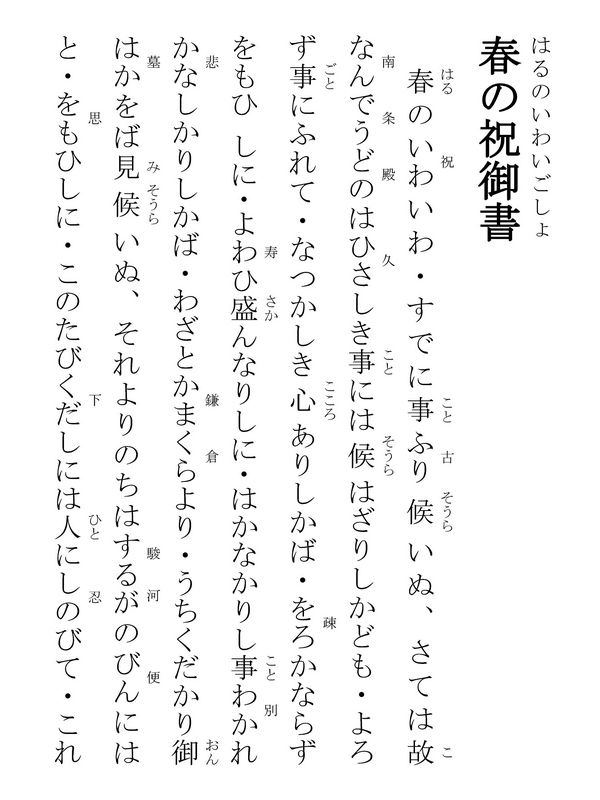 はるのいわいごしょ
春の祝御書
はる 祝 こと 古 そうら こ
春のいわいわ・すでに事ふり候いぬ、さては故
南 条 殿 久 こと そうら
なんでうどのはひさしき事には候はざりしかども・よろ
ごと こころ 疎
ず事にふれて・なつかしき心ありしかば・をろかならず
寿 さか こと 別
をもひしに・よわひ盛んなりしに・はかなかりし事わかれ
悲 鎌 倉 おん
かなしかりしかば・わざとかまくらより・うちくだかり御
墓 み そうら 駿 河 便
はかをば見候いぬ、それよりのちはするがのびんには
思 下 ひと 忍
と・をもひしに・このたびくだしには人にしのびて・これ